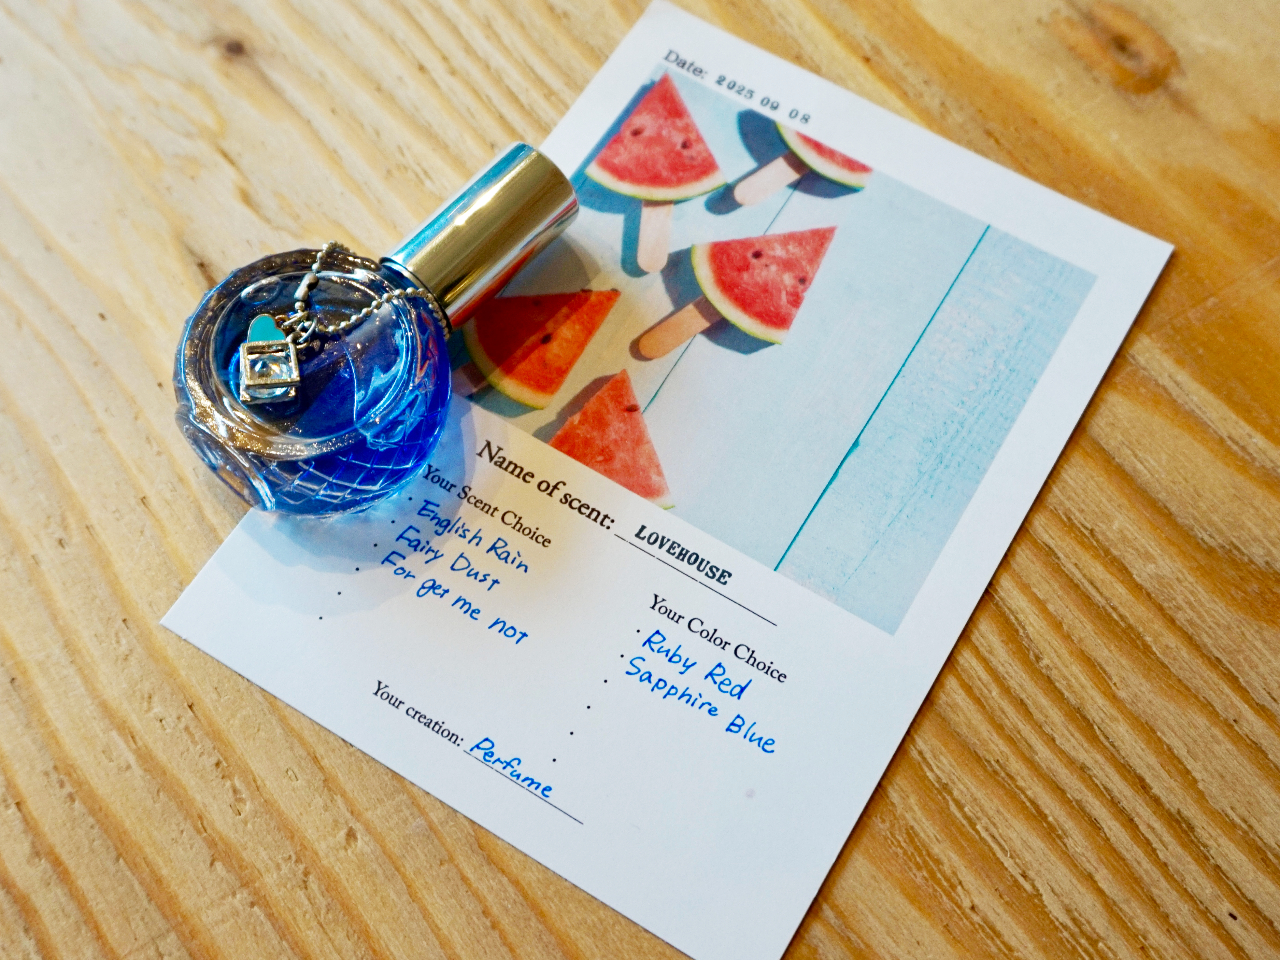 Date: 2025 09 08
Name of scent: LOVEHOUSE
Your Scent Choice
· English Rain
· Fairy Dust
· For get me not
·
·
Your Color Choice
· Ruby Red
· Sapphire Blue
·
·
·
·
Your creation: Perfume